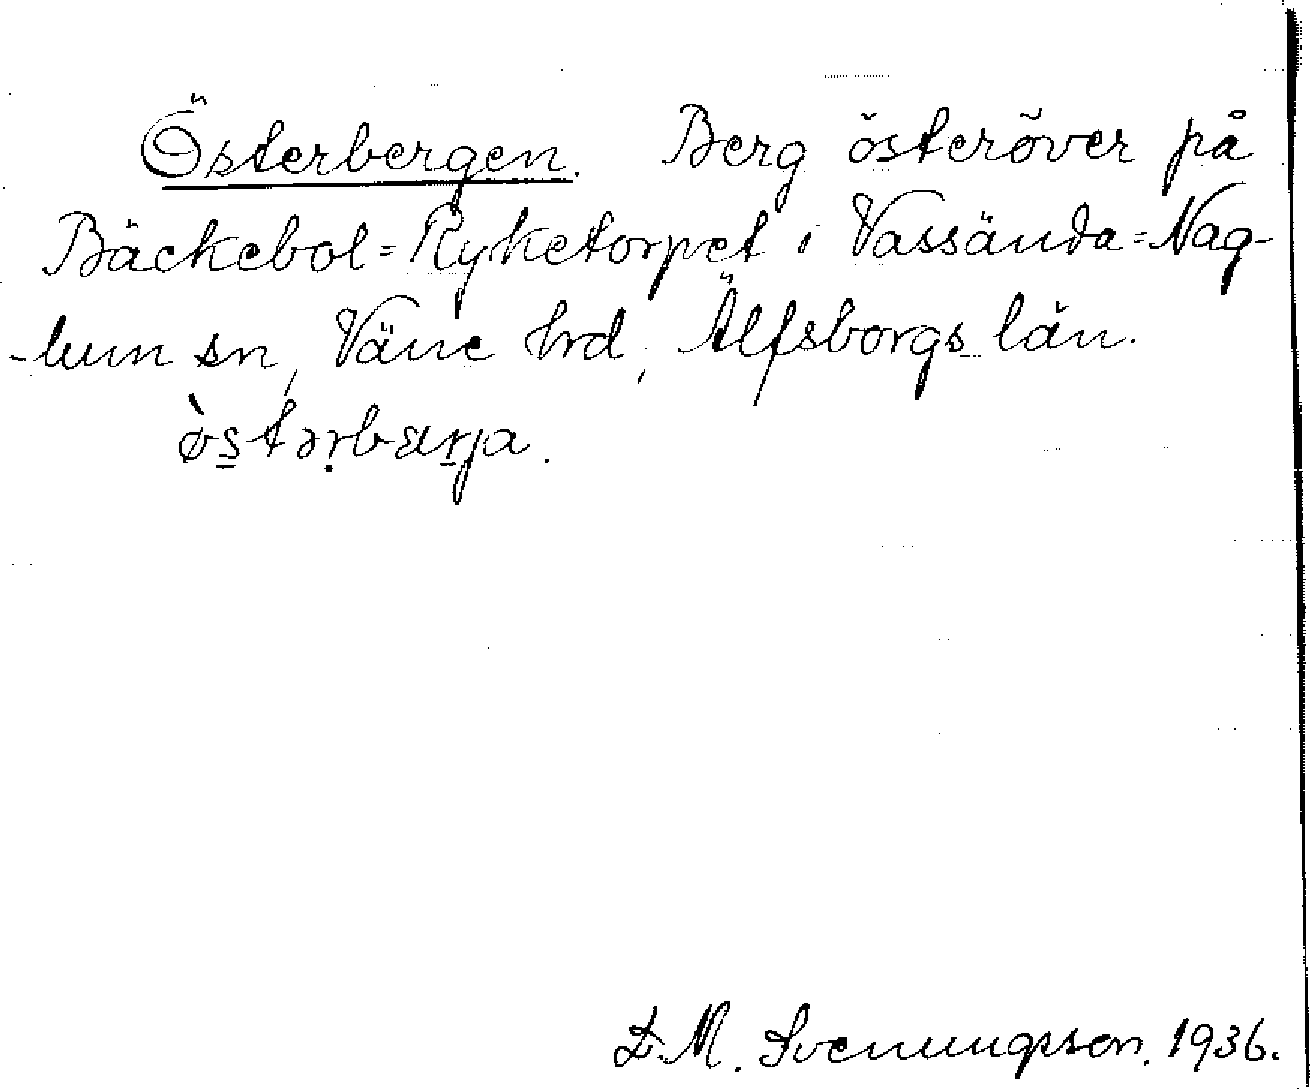 Österbergen. Berg österöver på
Bäckebol=Ryketorpet i Vassända=Nag-
-lum sn, Väne hrd, Älfsborgs län.
ò̀s̲tərbærja.
L.M. Svenungsson. 1936.